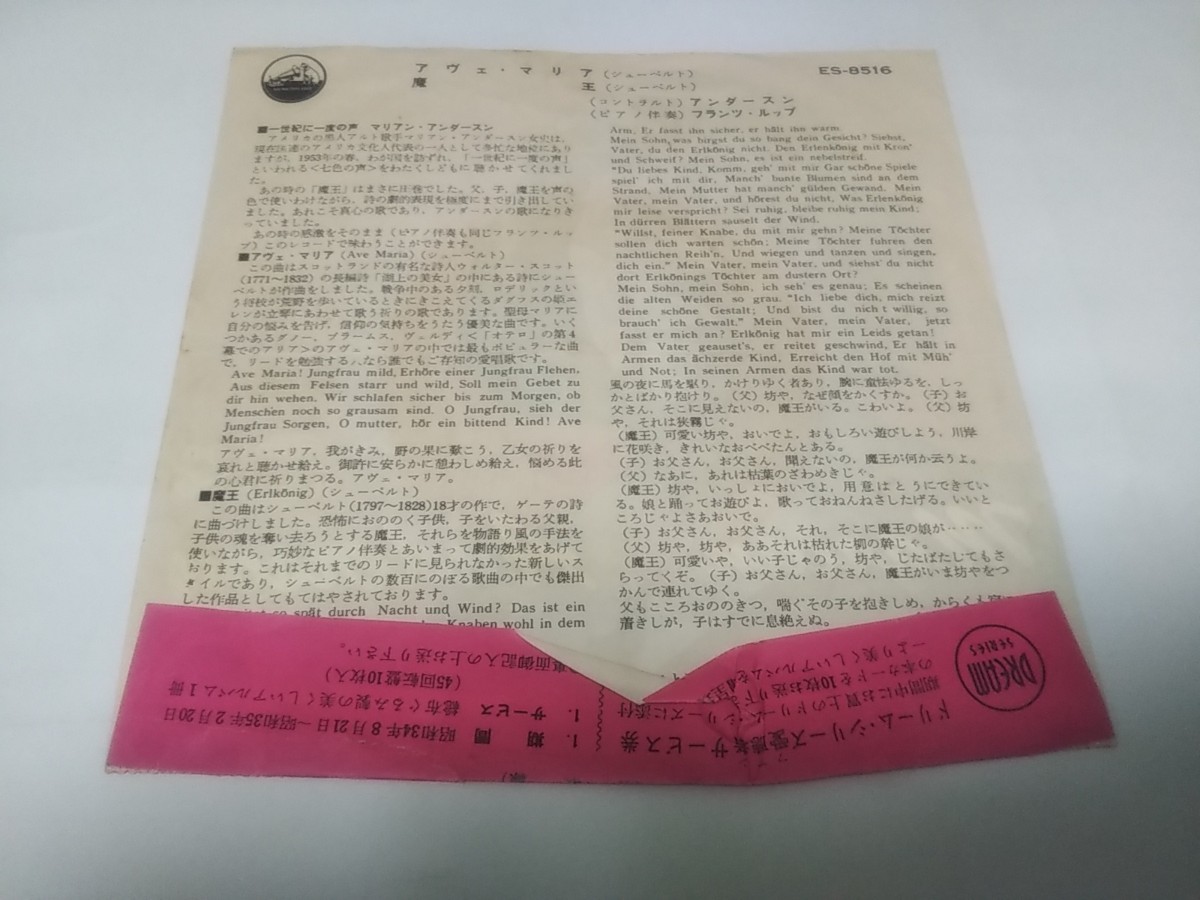 アヴェ・マリア(シューベルト)
魔 王(シューベルト)
ES-8516
(コントラルト) アンダースン
(ピアノ伴奏) フランツ・ルップ
■一世紀に一度の声 マリアン・アンダースン
アメリカの黒人アルト歌手マリアン・アンダースン女史は,
現在永遠のアメリカ文化人代表の一人として多忙な地位にあり
ますが, 1953年の春, わが国を訪ずれ, 「一世紀に一度の声」
といわれる<七色の声>をわたくしどもに聴かせてくれまし
た。
あの時の「魔王」はまさに圧巻でした。父, 子, 魔王を声の
色で使いわけながら, 詩の劇的表現を極度にまで引き出してい
ました。あれこそ真心の歌であり, アンダースンの歌になりき
っていました。
あの時の感激をそのまま (ピアノ伴奏も同じフランツ・ルッ
プ) このレコードで味わうことができます。
■アヴェ・マリア (Ave Maria) (シューベルト)
この曲はスコットランドの有名な詩人ウォルター・スコット
(1771〜1832) の長編詩「湖上の美女」の中にある詩にシュー
ベルトが作曲をしました。戦争中のある夕刻, ロデリックとい
う将校が荒野を歩いているときにきこえてくるダグラスの姫エ
レンが立琴にあわせて歌う祈りの歌であります。聖母マリアに
自分の悩みを告げ, 信仰の気持ちをうたう優美な曲です。いく
つかあるグノー, ブラームス, ヴェルディ(「オテロ」の第4
幕でのアリア>のアヴェ・マリアの中では最もポピュラーな曲
で, リードを勉強する人なら誰でもご存知の愛唱歌です。
Ave Maria! Jungfrau mild, Erhöre einer Jungfrau Flehen,
Aus diesem Felsen starr und wild, Soll mein Gebet zu
dir hin wehen. Wir schlafen sicher bis zum Morgen, ob
Menschen noch so grausam sind. O Jungfrau, sieh der
Jungfrau Sorgen, O mutter, hör ein bittend Kind! Ave
Maria!
アヴェ・マリア, 我がきみ, 野の果に歎こう, 乙女の祈りを
哀れと聴かせ給え。御許に安らかに憩わしめ給え, 悩める此
の心君に祈りまつる。アヴェ・マリア。
■魔王 (Erlkönig) (シューベルト)
この曲はシューベルト(1797〜1828)18才の作で, ゲーテの詩
に曲づけしました。恐怖におののく子供, 子をいたわる父親,
子供の魂を奪い去ろうとする魔王, それらを物語り風の手法を
使いながら, 巧妙なピアノ伴奏とあいまって劇的効果をあげて
おります。これはそれまでのリードに見られなかった新しいス
タイルであり, シューベルトの数百にのぼる歌曲の中でも傑出
した作品としてもてはやされております。
so spät durch Nacht und Wind? Das ist ein
Knaben wohl in dem
Arm, Er fasst ihn sicher, er hält ihn warm.
Mein Sohn, was birgst du so bang dein Gesicht? Siehst,
Vater, du den Erlkönig nicht. Den Erlenkönig mit Kron'
und Schweif? Mein Sohn, es ist ein nebelstreif.
"Du liebes Kind, Komm, geh' mit mir Gar schöne Spiele
spiel' ich mit dir, Manch' bunte Blumen sind an dem
Strand, Mein Mutter hat manch' gülden Gewand. Mein
Vater, mein Vater, und hörest du nicht, Was Erlenkönig
mir leise verspricht? Sei ruhig, bleibe ruhig mein Kind;
In dürren Blättern sauselt der Wind.
"Willst, feiner Knabe, du mit mir gehn? Meine Töchter
sollen dich warten schön; Meine Töchter fuhren den
nachtlichen Reih'n, Und wiegen und tanzen und singen,
dich ein." Mein Vater, mein Vater, und siehst du nicht
dort Erlkönigs Töchter am dustern Ort?
Mein Sohn, mein Sohn, ich seh' es genau; Es scheinen
die alten Weiden so grau. "Ich liebe dich, mich reizt
deine schöne Gestalt; Und bist du nicht willig, so
brauch' ich Gewalt." Mein Vater, mein Vater, jetzt
fasst er mich an? Erlkönig hat mir ein Leids getan!
Dem Vater geauset's, er reitet geschwind, Er hält in
Armen das ächzerde Kind, Erreicht den Hof mit Müh'
und Not; In seinen Armen das Kind war tot.
風の夜に馬を駆り, かけりゆく者あり, 腕に童怯ゆるを, しっ
かとばかり抱けり。(父) 坊や, なぜ顔をかくすか。(子) お
父さん, そこに見えないの, 魔王がいる。こわいよ。(父) 坊
や, それは狭霧じゃ。
(魔王) 可愛い坊や, おいでよ, おもしろい遊びしよう, 川岸
に花咲き, きれいなおべべたんとある。
(子) お父さん, お父さん, 聞えないの, 魔王が何か云うよ。
(父) なあに, あれは枯葉のざわめきじゃ。
(魔王) 坊や, いっしょにおいでよ, 用意はとうにできてい
る。娘と踊ってお遊びよ, 歌っておねんねさしたげる。いいと
ころじゃよさあおいで。
(子) お父さん, お父さん, それ, そこに魔王の娘が‥‥‥
(父) 坊や, 坊や, ああそれは枯れた柳の幹じゃ。
(魔王) 可愛いや, いい子じゃのう, 坊や, じたばたしてもさ
らってくぞ。(子) お父さん, お父さん, 魔王がいま坊やをつ
かんで連れてゆく。
父もこころおののきつ, 喘ぐその子を抱きしめ, からくも宿に
着きしが, 子はすでに息絶えぬ。
DREAM SERIES
ドリーム・シリーズ愛聴者サービス券
期間中にお買上のドリーム・シリーズに添付
の本カードを10枚お送り下
より美くしいアルバムを
1. 期 間 昭和34年8月21日→昭和35年2月20日
1. サービス 総布ぐるみ製の美くしいアルバム1冊
(45回転盤10枚入)
裏面御記入の上お送り下さい。